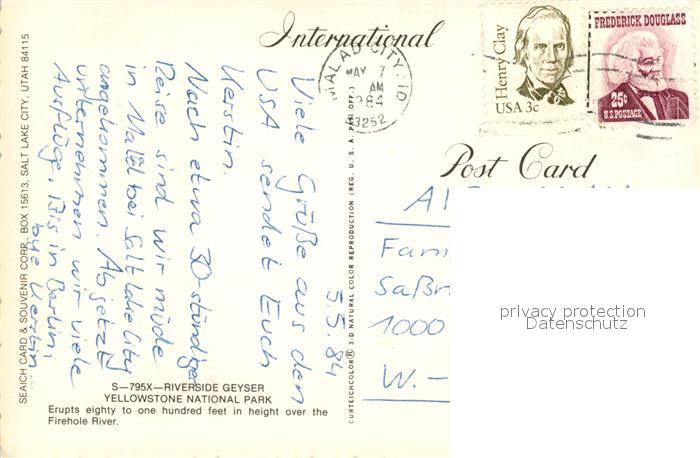 International
Post Card
MALAD CITY, ID
MAY 7
AM
1984
83252
Henry Clay
USA 3c
FREDERICK DOUGLASS
25¢
U.S. POSTAGE
5.5.84
Viele Grüße aus den
USA sendet Euch
Kerstin.
Nach etwa 30-stündiger
Reise sind wir müde
in Motel bei Salt Lake City
angekommen. Ab jetzt
unternehmen wir viele
Ausflüge. Bis in Berlin,
bye Kerstin
SEAICH CARD & SOUVENIR CORP. BOX 15613, SALT LAKE CITY, UTAH 84115
S—795X—RIVERSIDE GEYSER
YELLOWSTONE NATIONAL PARK
Erupts eighty to one hundred feet in height over the
Firehole River.
CURTEICHCOLOR® 3-D NATURAL COLOR REPRODUCTION (REG. U.S.A. PAT. OFF.)
Fam
Saßr
1000
W.-
privacy protection
Datenschutz